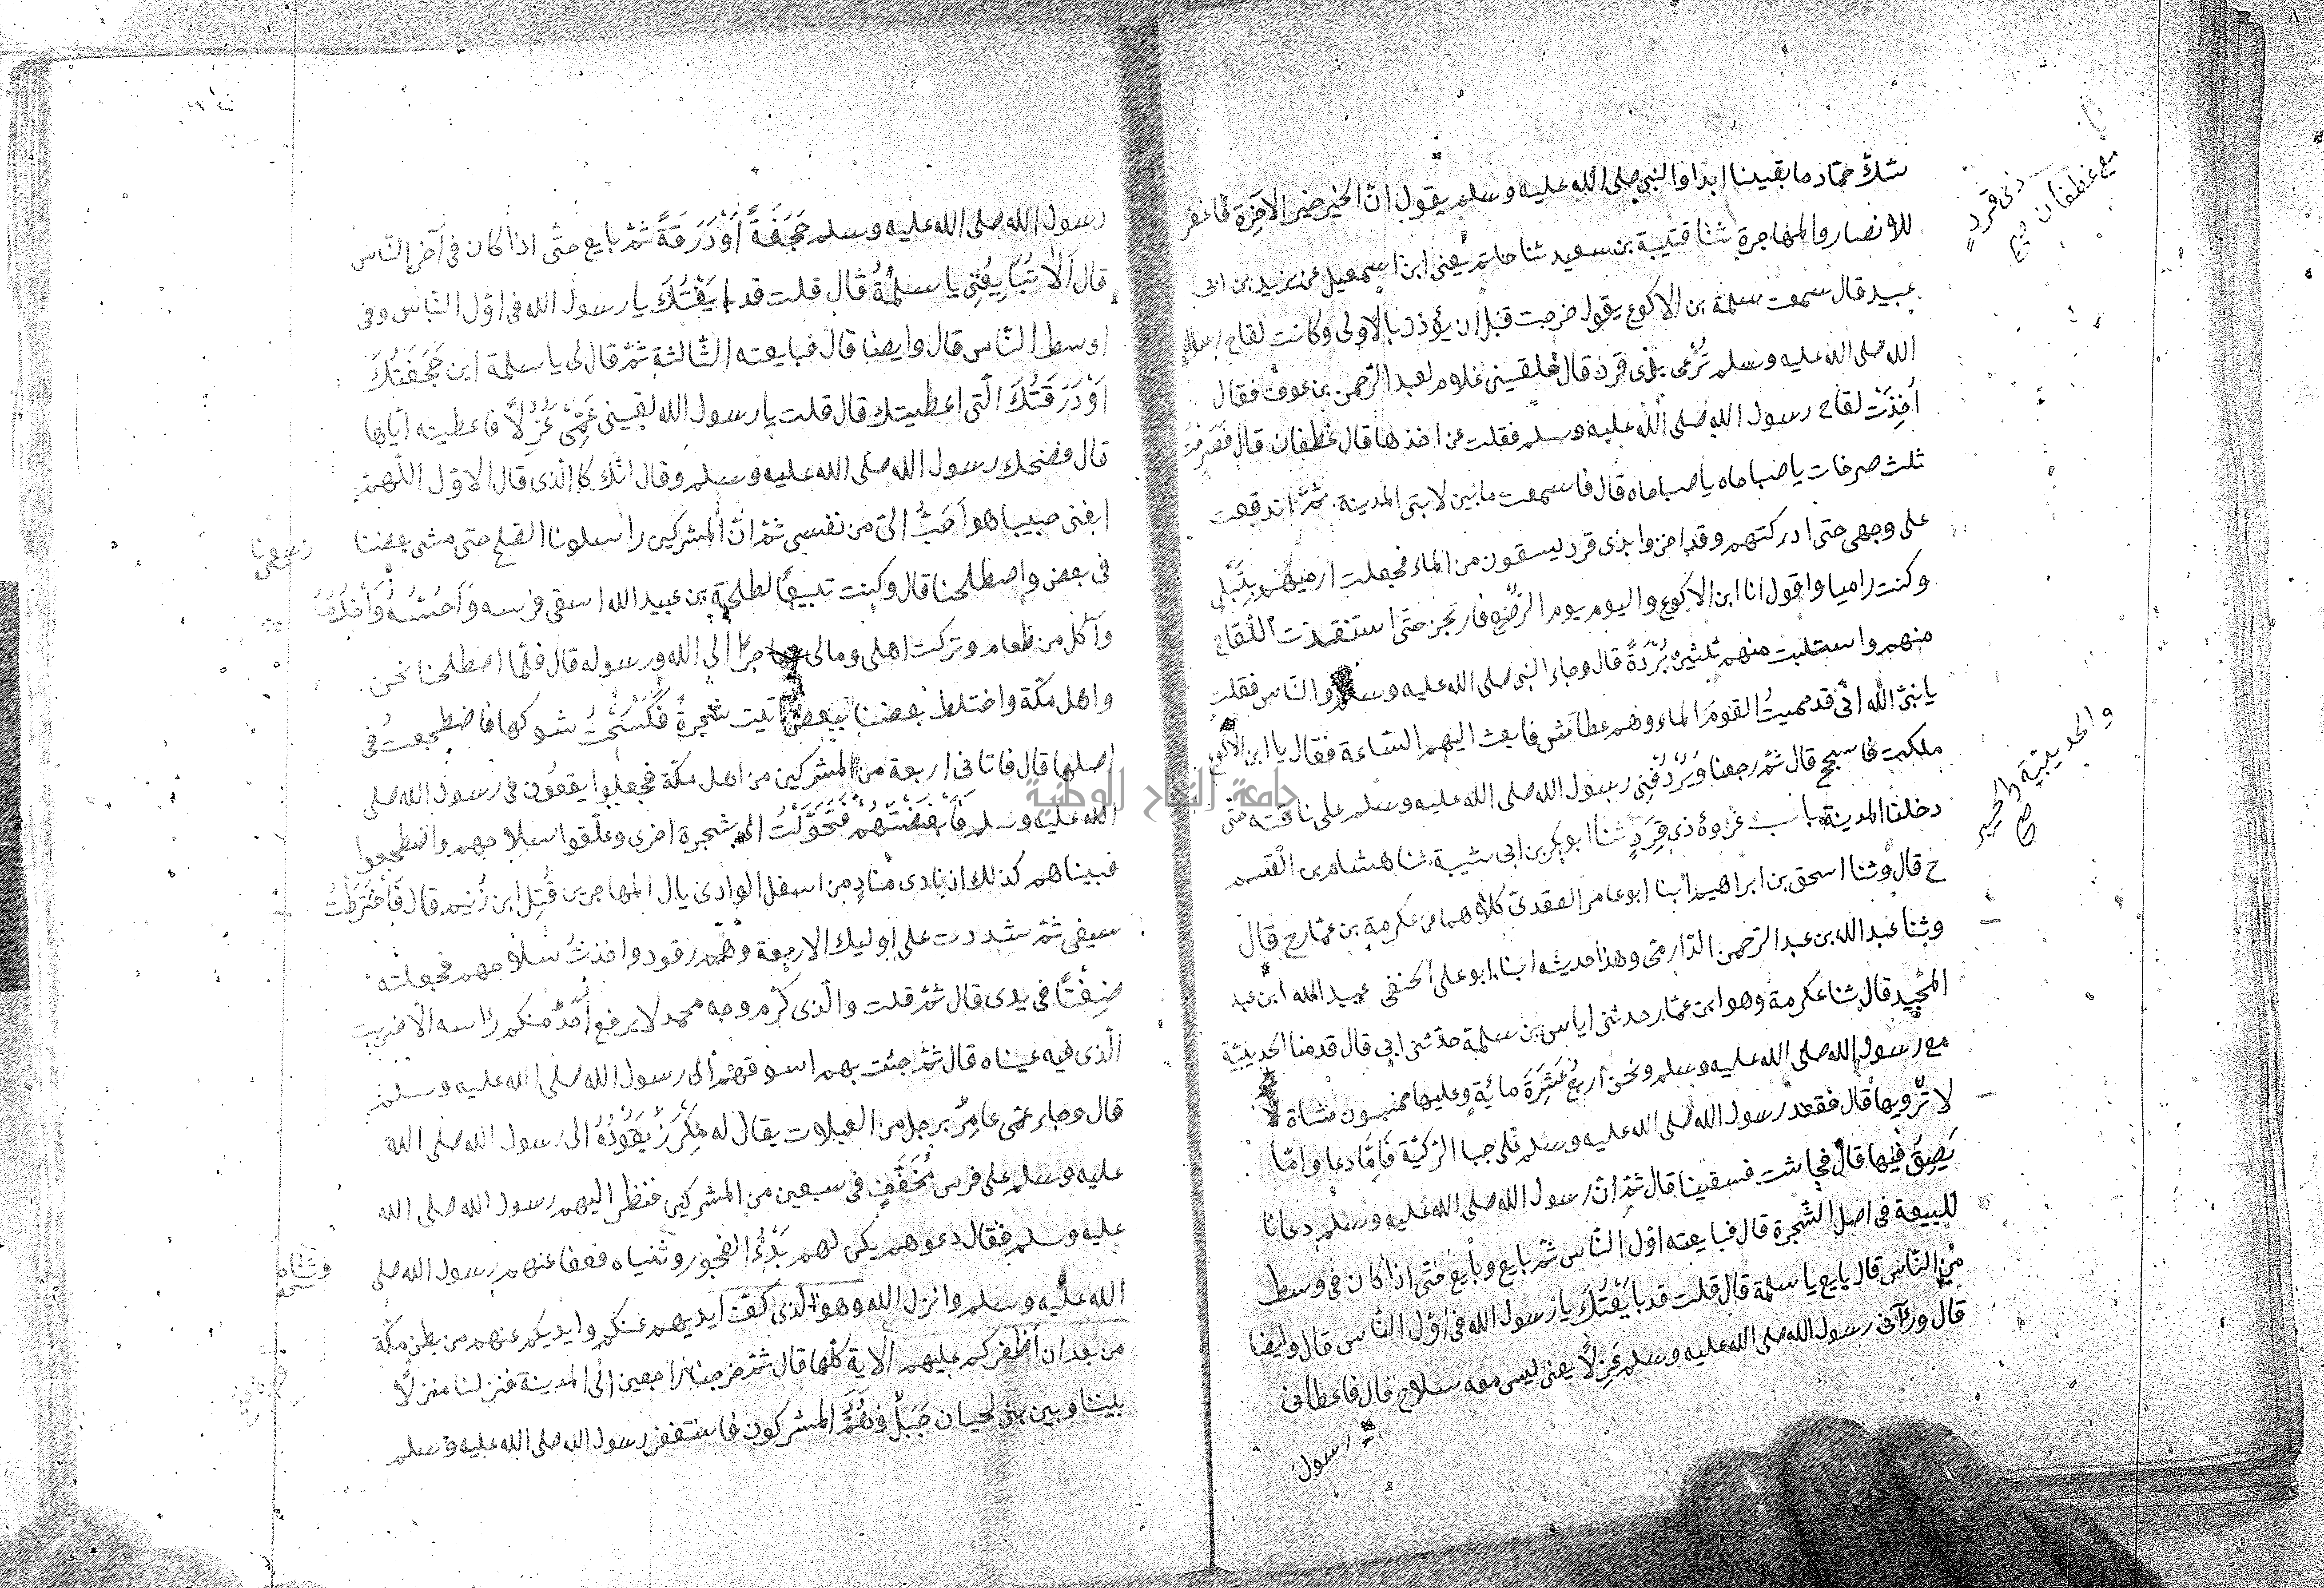 شك حماد ما بقينا ابدا والنبي صلى الله عليه وسلم يقول ان الخير خير الآخرة فاغفر
للانصار والمهاجرة ثنا قتيبة بن سعيد ثنا حاتم يعنى ابن اسمعيل عن يزيد بن ابى
عبيد قال سمعت سلمة بن الاكوع يقول خرجت قبل ان يؤذن بالاولى وكانت لقاح رسول
الله صلى الله عليه وسلم ترعى بذى قرد قال فلقينى غلام لعبد الرحمن بن عوف فقال
أُخِذَتْ لقاح رسول الله صلى الله عليه وسلم فقلت من اخذها قال غطفان قال فصرخت
ثلث صرخات يا صباحاه يا صباحاه قال فاسمعت ما بين لابتى المدينة ثم اندفعت
على وجهى حتى ادركتهم وقد اخذوا بذى قرد يسقون من الماء فجعلت ارميهم بنبلى
وكنت راميا واقول انا ابن الاكوع واليوم يوم الرضع فارتجز حتى استنقذت اللقاح
منهم واستلبت منهم ثلثين بُرْدَةً قال وجاء النبى صلى الله عليه وسلم والناس فقلت
يا نبى الله انى قد حميت القوم الماء وهم عطاش فابعث اليهم الساعة فقال يا ابن الاكوع
ملكت فاسجح قال ثم رجعنا ويُرْدِفُنِى رسول الله صلى الله عليه وسلم على ناقته حتى
دخلنا المدينة باب غزوة ذى قَرَدٍ ثنا ابو بكر بن ابى شيبة ثنا هشام بن القسم
ح قال وثنا اسحق بن ابراهيم ابنا ابو عامر العقدى كلاهما عن عكرمة بن عمار ح قال
وثنا عبد الله بن عبد الرحمن الدارمى وهذا حديثه ابنا ابو على الحنفى عبيد الله ابن عبد
المجيد قال ثنا عكرمة وهو ابن عمار حدثنى اياس بن سلمة حدثنى ابى قال قدمنا الحديبية
مع رسول الله صلى الله عليه وسلم ونحن اربع عَشَرَةَ مائة وعليها خمسون شاة
لا تُرْوِيها قال فقعد رسول الله صلى الله عليه وسلم على جبا الركية فاما دعا واما
بَصِقَ فيها قال فجاشت فسقينا قال ثم ان رسول الله صلى الله عليه وسلم دعانا
للبيعة فى اصل الشجرة قال فبايعته اول الناس ثم بايع وبايع حتى اذا كان فى وسط
من الناس قال بايع يا سلمة قال قلت قد بَايَعْتُكَ يا رسول الله فى اول الناس قال وايضا
قال ورآنى رسول الله صلى الله عليه وسلم عَزِلًا يعنى ليس معه سلاح قال فاعطانى
رسول
ذى قردٍ
مع غطفان
والحديبية
رسول الله صلى الله عليه وسلم حَجَفَةً اَوْ دَرَقَةً ثم بايع حتى اذا كان فى آخر الناس
قال اَلَا تُبَايِعُنِى يا سلمةُ قال قلت قد بايَعْتُكَ يا رسول الله فى اول الناس وفى
اوسط الناس قال وايضا قال فبايعته الثالثة ثم قال لى يا سلمة اين حَجَفَتُكَ
اَوْ دَرَقَتُكَ الَّتى اعطيتك قال قلت يا رسول الله لقينى عَمِّى عَزِلًا فاعطيته اياها
قال فضحك رسول الله صلى الله عليه وسلم وقال انك كالذى قال الاول اللهم
ابغنى حبيبا هو اَحَبُّ الىّ من نفسى ثم ان المشركين راسلونا الصلح حتى مشى بعضنا
فى بعض واصطلحنا قال وكنت تبيعًا لطلحة بن عبيد الله اسقى فرسه وَاَحُسُّهُ وَاَخْدُمُهُ
وآكل من طعام وتركت اهلى ومالى مهاجرًا الى الله ورسوله قال فلما اصطلحنا نحن
واهل مكة واختلط بعضنا ببعض اتيت شجرةً فَكَسَحْتُ شوكها فاضطجعت فى
اصلها قال فاتانى اربعة من المشركين من اهل مكة فجعلوا يقعون فى رسول الله صلى
الله عليه وسلم فَاَبْغَضْتُهُمْ فتَحَوَّلْتُ الى شجرة اخرى وعلقوا سلاحهم واضطجعوا
فبيناهم كذلك اذ نادى منادٍ من اسفل الوادى يال المهاجرين قُتِل ابن زُنيم قال فَاخْتَرَطْتُ
سيفى ثم شددت على اوليك الاربعة وهم رقود واخذت سلاحهم فجعلته
ضِغْثًا فى يدى قال ثم قلت والذى كرم وجه محمد لا يرفع اَحَدٌ منكم رأسه الا ضربت
الذى فيه عيناه قال ثم جئت بهم اسوقهم الى رسول الله صلى الله عليه وسلم
قال وجاء عمى عامِرٌ برجل من العبلات يقال له مِكْرَزٌ يَقُودُهُ الى رسول الله صلى الله
عليه وسلم على فرس مُجَفَّفٍ فى سبعين من المشركين فنظر اليهم رسول الله صلى الله
عليه وسلم فقال دعوهم يكن لهم بَدْءُ الفجور وثنياه فعفا عنهم رسول الله صلى
الله عليه وسلم وانزل الله وهو الَّذى كف ايديهم عنكم وايديكم عنهم من بطن مكة
من بعد ان اظفركم عليهم الآية كلها قال ثم خرجنا راجعين الى المدينة فنزلنا منزلًا
بيننا وبين بنى لحيان جَبَلٌ وَهُمُ المشركون فاستغفر رسول الله صلى الله عليه وسلم
وثناه
جامعة النجاح الوطنية